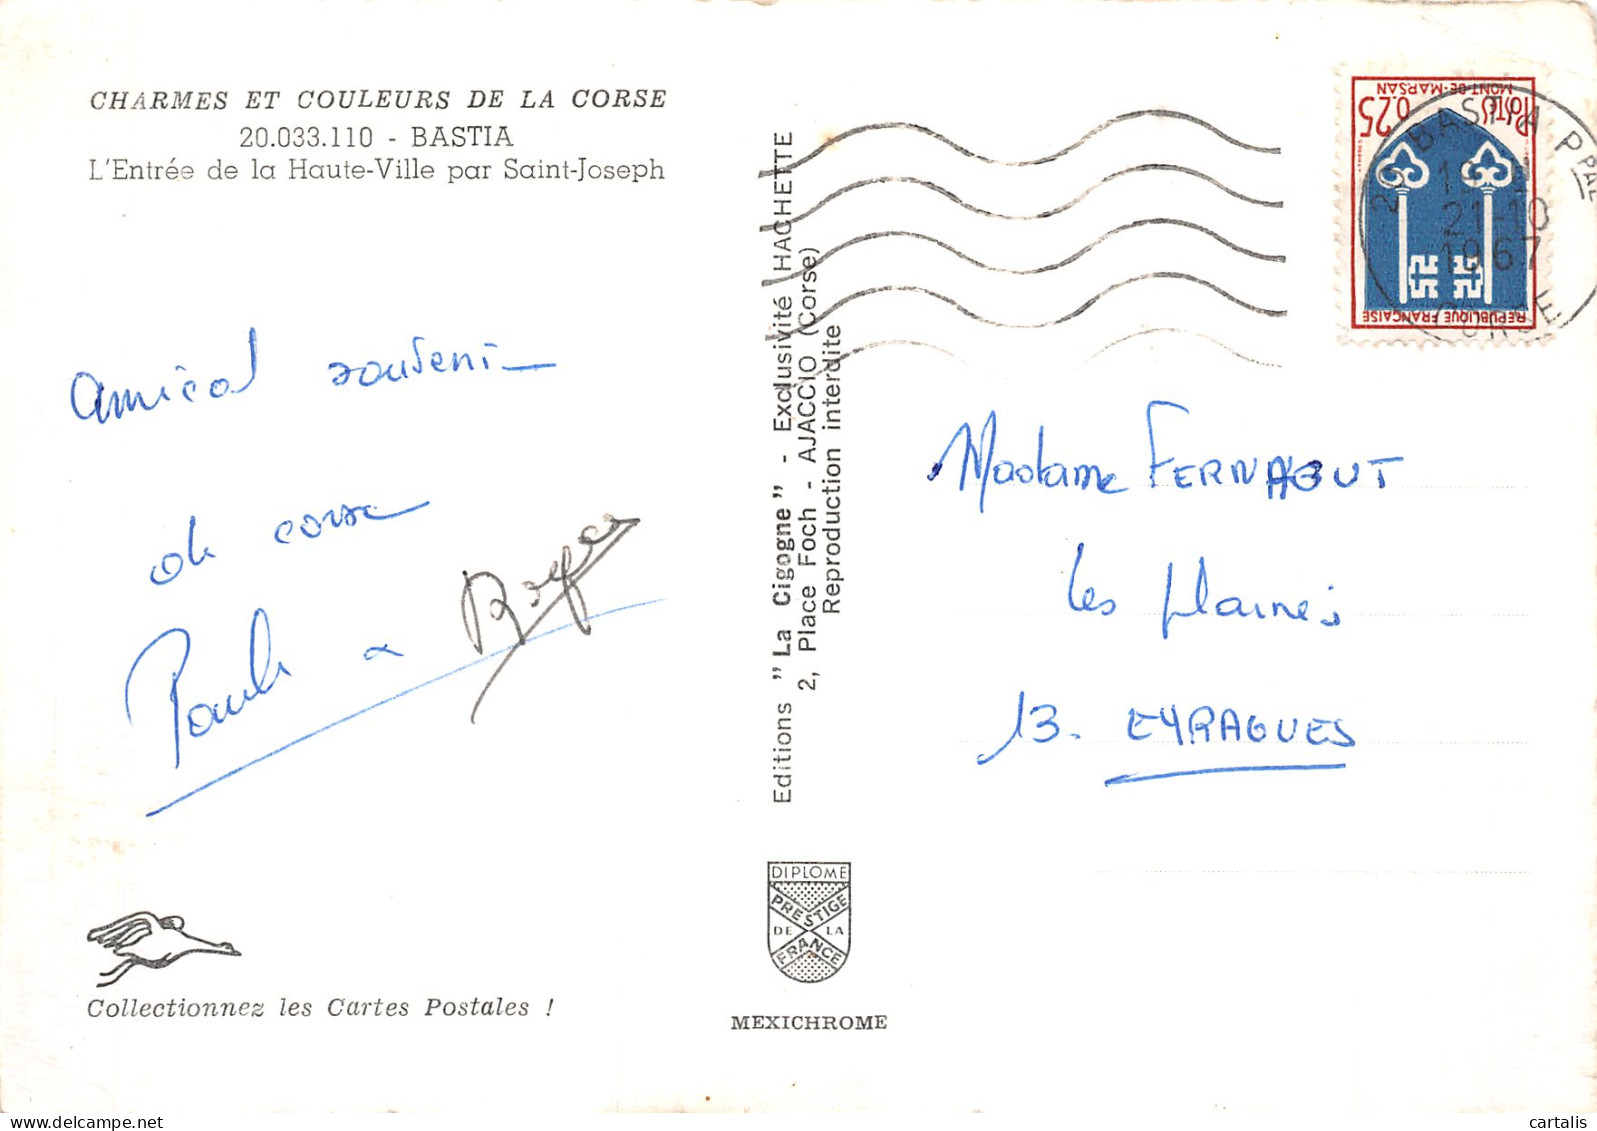 CHARMES ET COULEURS DE LA CORSE
20.033.110 - BASTIA
L'Entrée de la Haute-Ville par Saint-Joseph
Amical souvenir
de corse
Paule & Roger
Collectionnez les Cartes Postales !
Editions "La Cigogne" - Exclusivité HACHETTE
2, Place Foch - AJACCIO (Corse)
Reproduction interdite
DIPLOME
PRESTIGE
DE LA
FRANCE
MEXICHROME
MONT-DE-MARSAN
POSTES 0,25
REPUBLIQUE FRANÇAISE
20 BASTIA PPAL
21-10
1967
CORSE
Madame FERNAGUT
Les plaines
13. EYRAGUES
cartalis